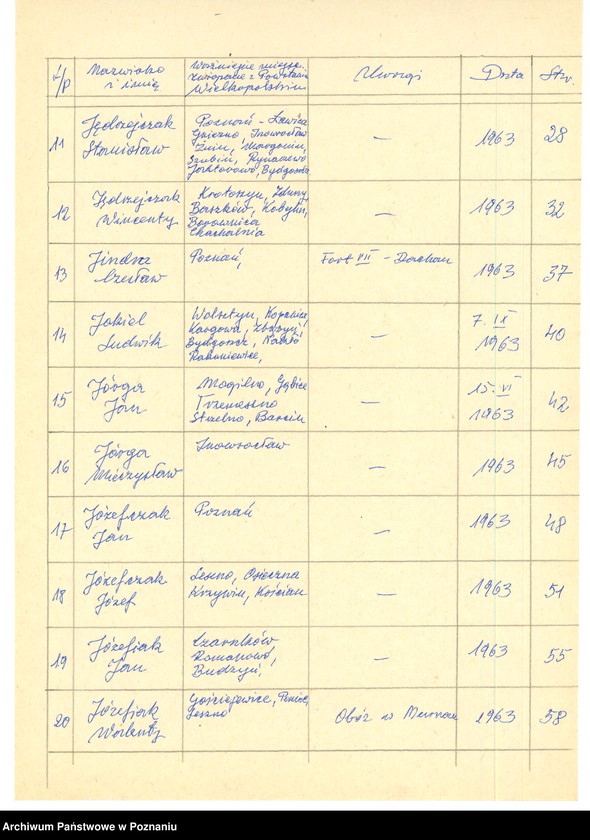 L/p Nazwisko i imię Ważniejsze miejsc. związane z Powstaniem Wielkopolskim Uwagi Data Str.
11 Jędrzejczak Stanisław Poznań - Ławica Gniezno, Inowrocław Żnin, Margonin, Szubin, Rynarzewo Bydgoszcz 1963 28
12 Jędrzejczak Wincenty Krotoszyn, Zduny Baszków, Kobylin, Borownica Chachalnia — 1963 32
13 Jindra Czesław Poznań, Fort VII - Dachau 1963 37
14 Jokiel Ludwik Wolsztyn, Kopanica Kargowa, Zbąszyń, Bydgoszcz, Nakło Rakoniewice, — 7. IX 1963 40
15 Jórga Jan Mogilno, Gębice Trzemeszno Strzelno, Barcin — 15. VI 1963 42
16 Jórga Mieczysław Inowrocław — 1963 45
17 Józefczak Jan Poznań — 1963 48
18 Józefczak Józef Leszno, Osieczna Krzywiń, Kościan — 1963 51
19 Józefiak Jan Czarnków Romanowo, Budzyń, — 1963 55
20 Józefiak Walenty Leszno Obóz w Murnau 1963 58
Archiwum Państwowe w Poznaniu